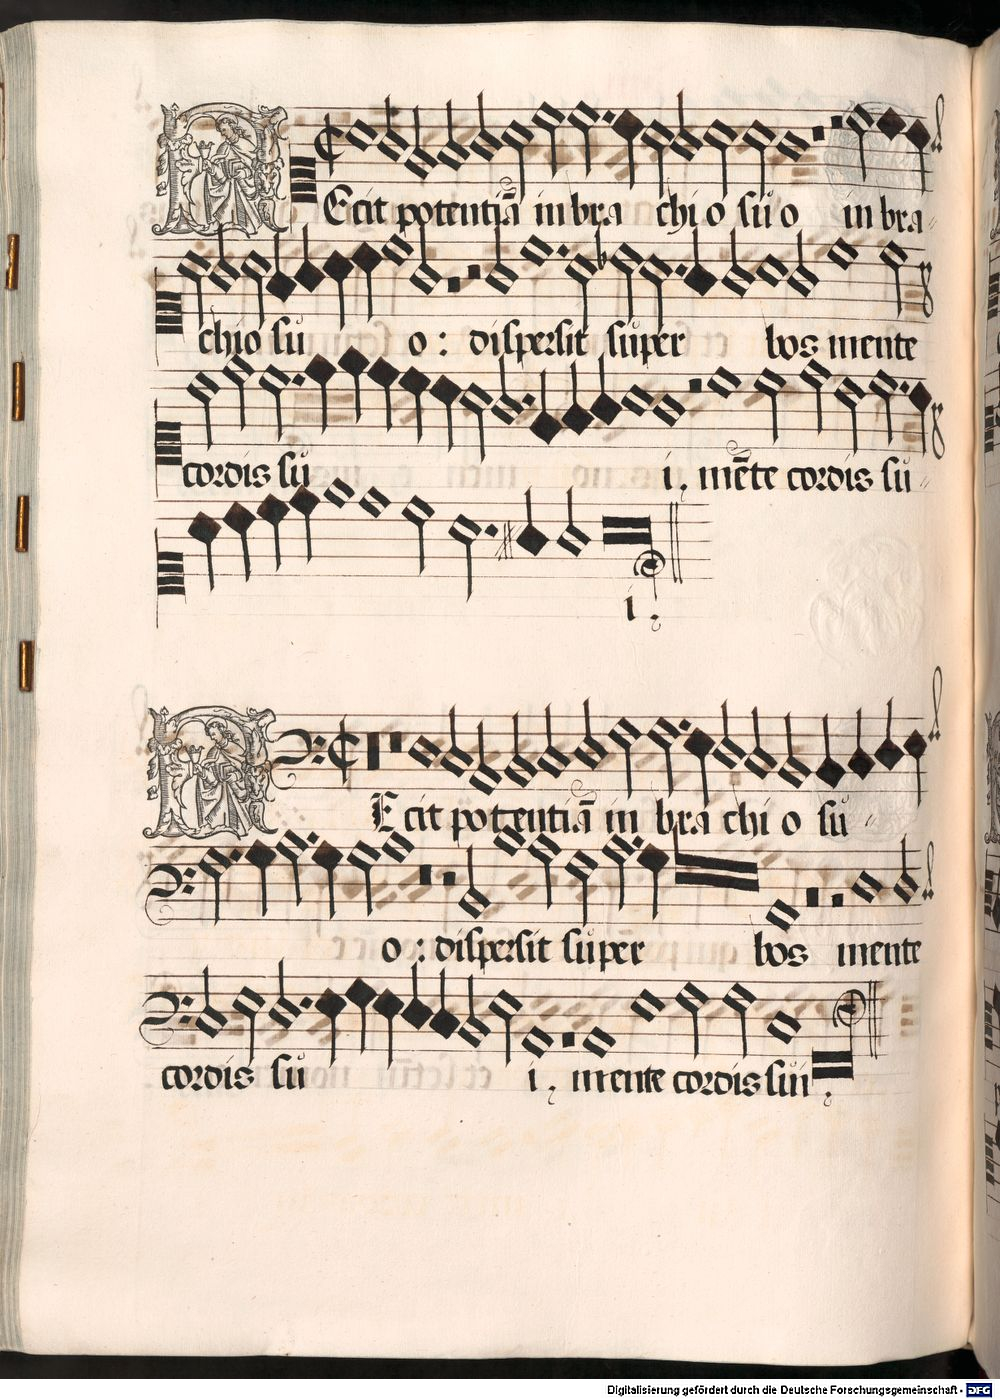 Ecit potentiā in bra chi o su o in bra
chio su o : dispersit super bos mente
cordis su i . mēte cordis su
i .
Ecit potentiā in bra chi o su
o : dispersit super bos mente
cordis su i . mente cordis sui .
Digitalisierung gefördert durch die Deutsche Forschungsgemeinschaft - DFG